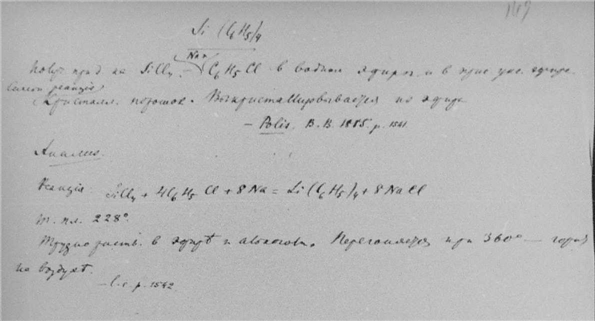 Si (C6H5)4
Na
на SiCl4 – C6H5Cl в водном эфире и в прис. укс. эфира
Кристалл. порошок. Выкристаллировывается из эфира
– Polis, B. B. 1885 p. 1541
Анализ.
Реакцiя. SiCl4 + 4C6H5Cl + 8Na = Si(C6H5)4 + 8NaCl
Т. пл. 228°.
Трудно раств. в эфирѣ и алкоголѣ. Перегоняется при 360° — горитъ
на воздухѣ.
– l. c. p. 1542